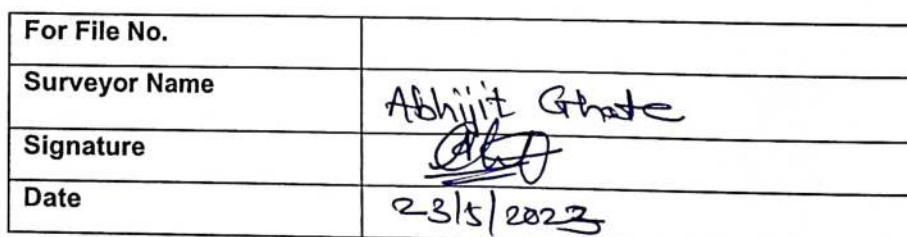 For File No.
Surveyor Name Abhijit Ghate
Signature
Date 23/5/2023